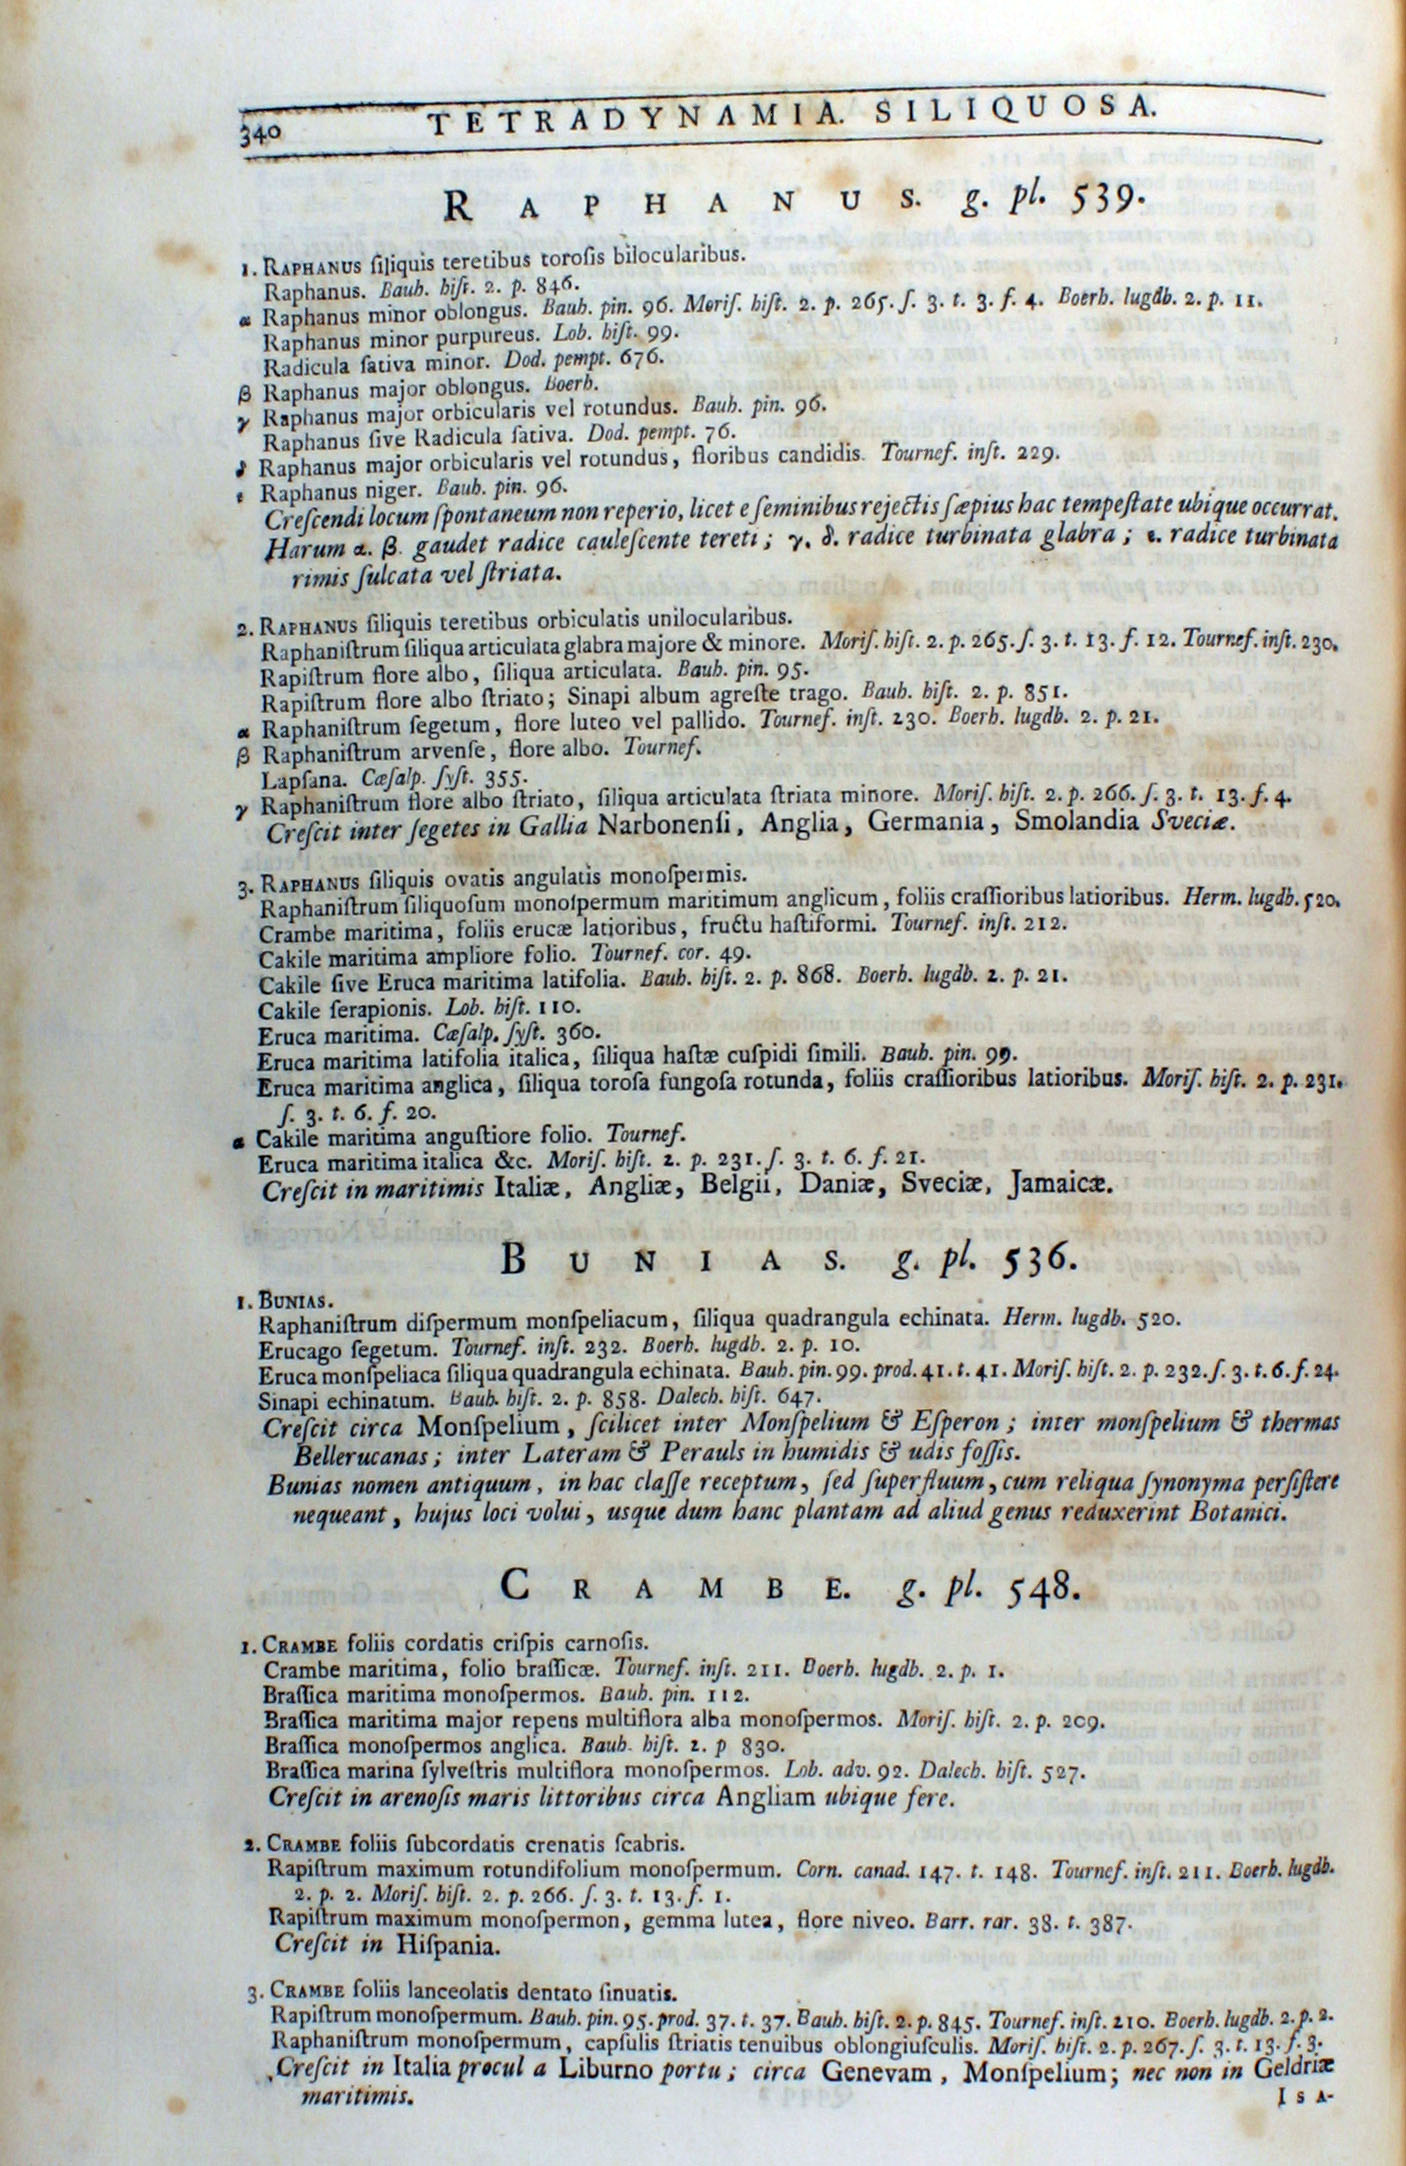 340 TETRADYNAMIA. SILIQUOSA.
RAPHANUS. g. pl. 539.
1. RAPHANUS ſiliquis teretibus toroſis bilocularibus.
Raphanus. Bauh. hiſt. 2. p. 846.
α Raphanus minor oblongus. Bauh. pin. 96. Moriſ. hiſt. 2. p. 265. ſ. 3. t. 3. f. 4. Boerh. lugdb. 2. p. 11.
Raphanus minor purpureus. Lob. hiſt. 99.
Radicula ſativa minor. Dod. pempt. 676.
β Raphanus major oblongus. Boerh.
γ Raphanus major orbicularis vel rotundus. Bauh. pin. 96.
Raphanus ſive Radicula ſativa. Dod. pempt. 76.
δ Raphanus major orbicularis vel rotundus, floribus candidis. Tournef. inſt. 229.
ε Raphanus niger. Bauh. pin. 96.
Creſcendi locum ſpontaneum non reperio, licet e ſeminibus rejectis ſæpius hac tempeſtate ubique occurrat.
Harum α. β. gaudet radice cauleſcente tereti; γ. δ. radice turbinata glabra; ε. radice turbinata
rimis ſulcata vel ſtriata.
2. RAPHANUS ſiliquis teretibus orbiculatis unilocularibus.
Raphaniſtrum ſiliqua articulata glabra majore & minore. Moriſ. hiſt. 2. p. 265. ſ. 3. t. 13. f. 12. Tournef. inſt. 230.
Rapiſtrum flore albo, ſiliqua articulata. Bauh. pin. 95.
Rapiſtrum flore albo ſtriato; Sinapi album agreſte trago. Bauh. hiſt. 2. p. 851.
α Raphaniſtrum ſegetum, flore luteo vel pallido. Tournef. inſt. 230. Boerh. lugdb. 2. p. 21.
β Raphaniſtrum arvenſe, flore albo. Tournef.
Lapſana. Cæſalp. ſyſt. 355.
γ Raphaniſtrum flore albo ſtriato, ſiliqua articulata ſtriata minore. Moriſ. hiſt. 2. p. 266. ſ. 3. t. 13. f. 4.
Creſcit inter ſegetes in Gallia Narbonenſi, Anglia, Germania, Smolandia Sveciæ.
3. RAPHANUS ſiliquis ovatis angulatis monoſpermis.
Raphaniſtrum ſiliquoſum monoſpermum maritimum anglicum, foliis craſſioribus latioribus. Herm. lugdb. 520.
Crambe maritima, foliis erucæ latioribus, fructu haſtiformi. Tournef. inſt. 212.
Cakile maritima ampliore folio. Tournef. cor. 49.
Cakile ſive Eruca maritima latifolia. Bauh. hiſt. 2. p. 868. Boerh. lugdb. 2. p. 21.
Cakile ſerapionis. Lob. hiſt. 110.
Eruca maritima. Cæſalp. ſyſt. 360.
Eruca maritima latifolia italica, ſiliqua haſtæ cuſpidi ſimili. Bauh. pin. 99.
Eruca maritima anglica, ſiliqua toroſa fungoſa rotunda, foliis craſſioribus latioribus. Moriſ. hiſt. 2. p. 231.
ſ. 3. t. 6. f. 20.
α Cakile maritima anguſtiore folio. Tournef.
Eruca maritima italica &c. Moriſ. hiſt. 2. p. 231. ſ. 3. t. 6. f. 21.
Creſcit in maritimis Italiæ, Angliæ, Belgii, Daniæ, Sveciæ, Jamaicæ.
BUNIAS. g. pl. 536.
1. BUNIAS.
Raphaniſtrum diſpermum monſpeliacum, ſiliqua quadrangula echinata. Herm. lugdb. 520.
Erucago ſegetum. Tournef. inſt. 232. Boerh. lugdb. 2. p. 10.
Eruca monſpeliaca ſiliqua quadrangula echinata. Bauh. pin. 99. prod. 41. t. 41. Moriſ. hiſt. 2. p. 232. ſ. 3. t. 6. f. 24.
Sinapi echinatum. Bauh. hiſt. 2. p. 858. Dalech. hiſt. 647.
Creſcit circa Monſpelium, ſcilicet inter Monſpelium & Eſperon; inter monſpelium & thermas
Bellerucanas; inter Lateram & Perauls in humidis & udis foſſis.
Bunias nomen antiquum, in hac claſſe receptum, ſed ſuperfluum, cum reliqua ſynonyma perſiſtere
nequeant, hujus loci volui, usque dum hanc plantam ad aliud genus reduxerint Botanici.
CRAMBE. g. pl. 548.
1. CRAMBE foliis cordatis criſpis carnoſis.
Crambe maritima, folio braſſicæ. Tournef. inſt. 211. Boerh. lugdb. 2. p. 1.
Braſſica maritima monoſpermos. Bauh. pin. 112.
Braſſica maritima major repens multiflora alba monoſpermos. Moriſ. hiſt. 2. p. 209.
Braſſica monoſpermos anglica. Bauh. hiſt. 2. p 830.
Braſſica marina ſylveſtris multiflora monoſpermos. Lob. adv. 92. Dalech. hiſt. 527.
Creſcit in arenoſis maris littoribus circa Angliam ubique fere.
2. CRAMBE foliis ſubcordatis crenatis ſcabris.
Rapiſtrum maximum rotundifolium monoſpermum. Corn. canad. 147. t. 148. Tournef. inſt. 211. Boerh. lugdb.
2. p. 2. Moriſ. hiſt. 2. p. 266. ſ. 3. t. 13. f. 1.
Rapiſtrum maximum monoſpermon, gemma lutea, flore niveo. Barr. rar. 38. t. 387.
Creſcit in Hiſpania.
3. CRAMBE foliis lanceolatis dentato ſinuatis.
Rapiſtrum monoſpermum. Bauh. pin. 95. prod. 37. t. 37. Bauh. hiſt. 2. p. 845. Tournef. inſt. 210. Boerh. lugdb. 2. p. 2.
Raphaniſtrum monoſpermum, capſulis ſtriatis tenuibus oblongiuſculis. Moriſ. hiſt. 2. p. 267. ſ. 3. t. 13. f. 3.
Creſcit in Italia procul a Liburno portu; circa Genevam, Monſpelium; nec non in Geldriæ
maritimis.
ISA-